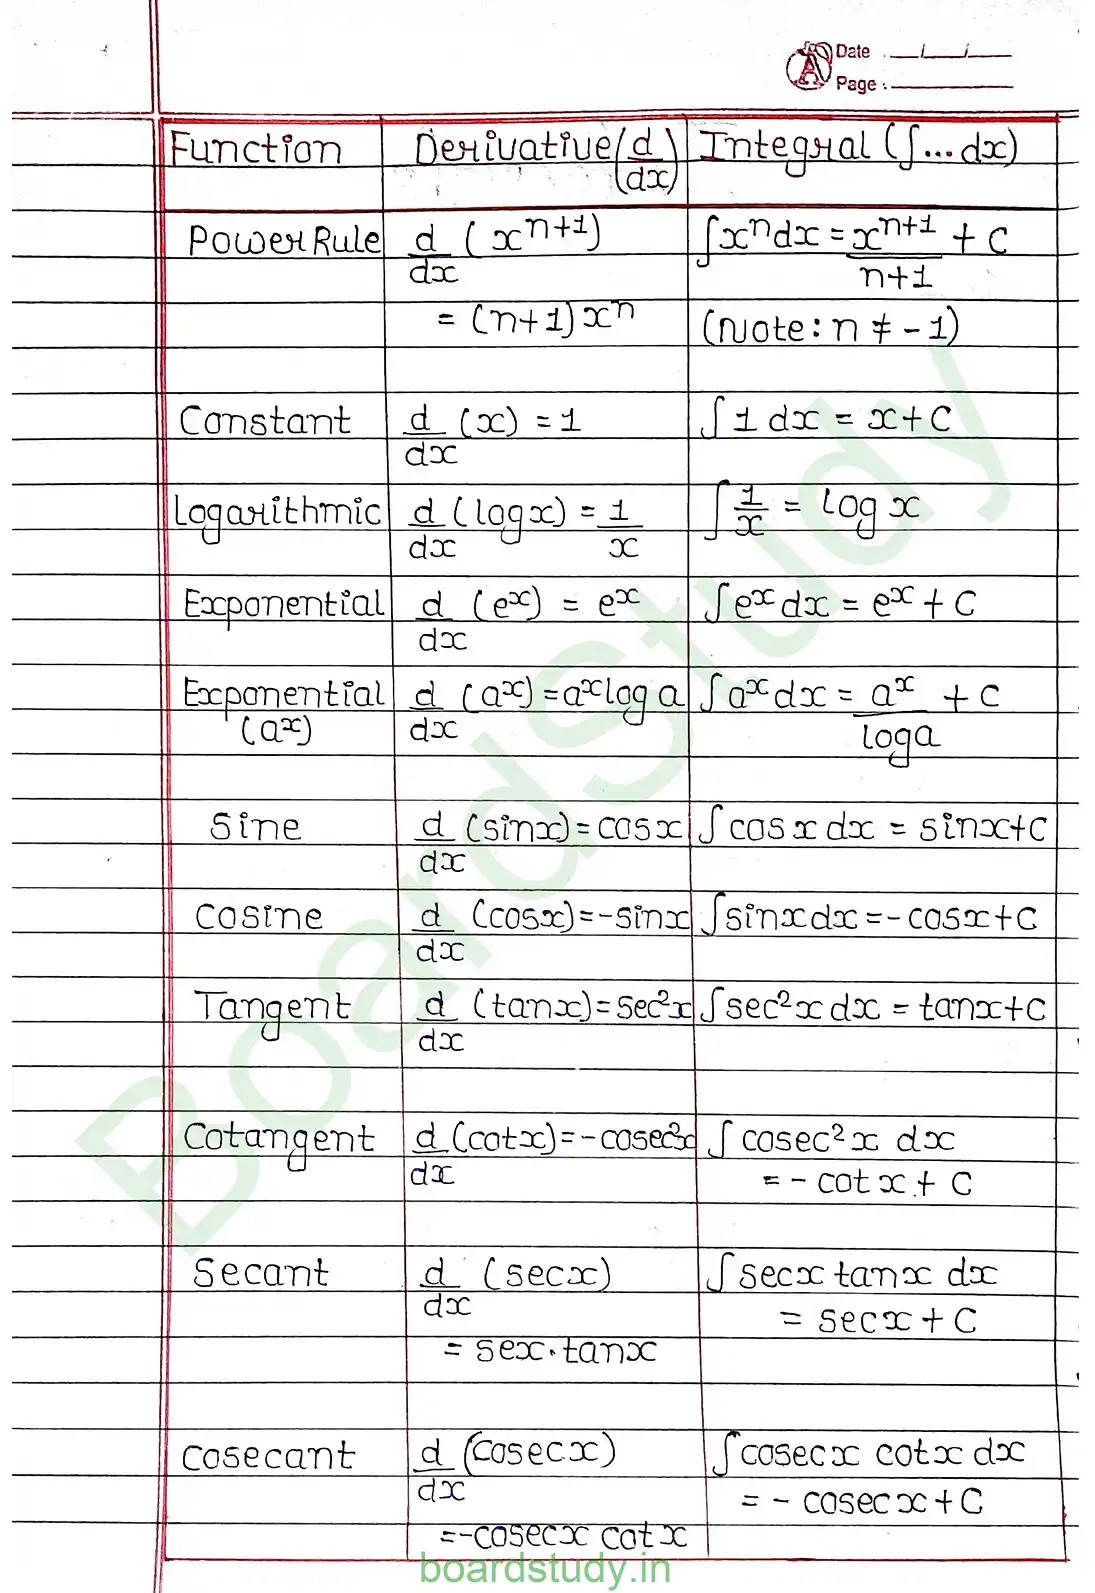 Date
Page :
Function Derivative (d/dx) Integral (∫...dx)
Power Rule d/dx (xⁿ⁺¹) ∫xⁿdx = xⁿ⁺¹/n+1 + C
= (n+1)xⁿ (Note: n ≠ -1)
Constant d/dx (x) = 1 ∫1 dx = x + C
Logarithmic d/dx (log x) = 1/x ∫1/x = log x
Exponential d/dx (eˣ) = eˣ ∫eˣ dx = eˣ + C
Exponential d/dx (aˣ) = aˣ log a ∫aˣ dx = aˣ/log a + C
(aˣ)
Sine d/dx (sinx) = cosx ∫cos x dx = sinx + C
Cosine d/dx (cosx) = -sinx ∫sinx dx = -cosx + C
Tangent d/dx (tanx) = sec²x ∫sec²x dx = tanx + C
Cotangent d/dx (cotx) = -cosec²x ∫cosec²x dx
= - cot x + C
Secant d/dx (secx) ∫secx tanx dx
= secx + C
= sex·tanx
Cosecant d/dx (cosecx) ∫cosecx cotx dx
= - cosecx + C
= -cosecx cotx
BoardStudy
boardstudy.in